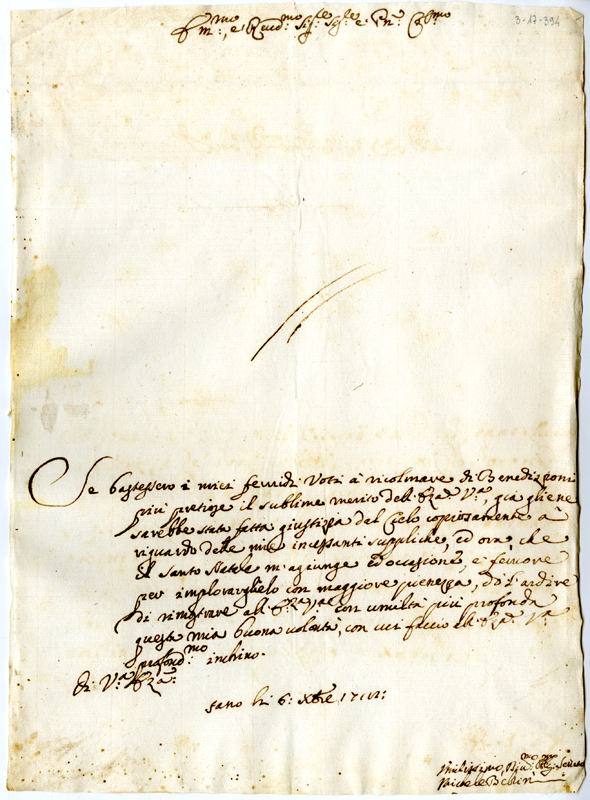 3-17-394
Em.mo: e Reud.mo Sig.re Sig.re e Pn.e Col.mo
Se bastassero i miei feruidi Voti à ricolmare di Benedizzioni
più pretize il sublime merito dell'Eza: V.a, già gliene
sarebbe stata fatta giustizia dal Cielo copiosamente à
riguardo delle mie incessanti suppliche, ed ora, che
il Santo Natale m'aggiunge ed'ocasione, e feruore
per implorarglielo con maggiore pienezza, dò l'ardire
di rimostrare all'Eza V.a con umiltà più profonda
questa mia buona volontà, con cui faccio all'Eza: V.a
profond.mo inchino.
di V.a Eza:
Fano li 6: Xbre
Vmilissimo,